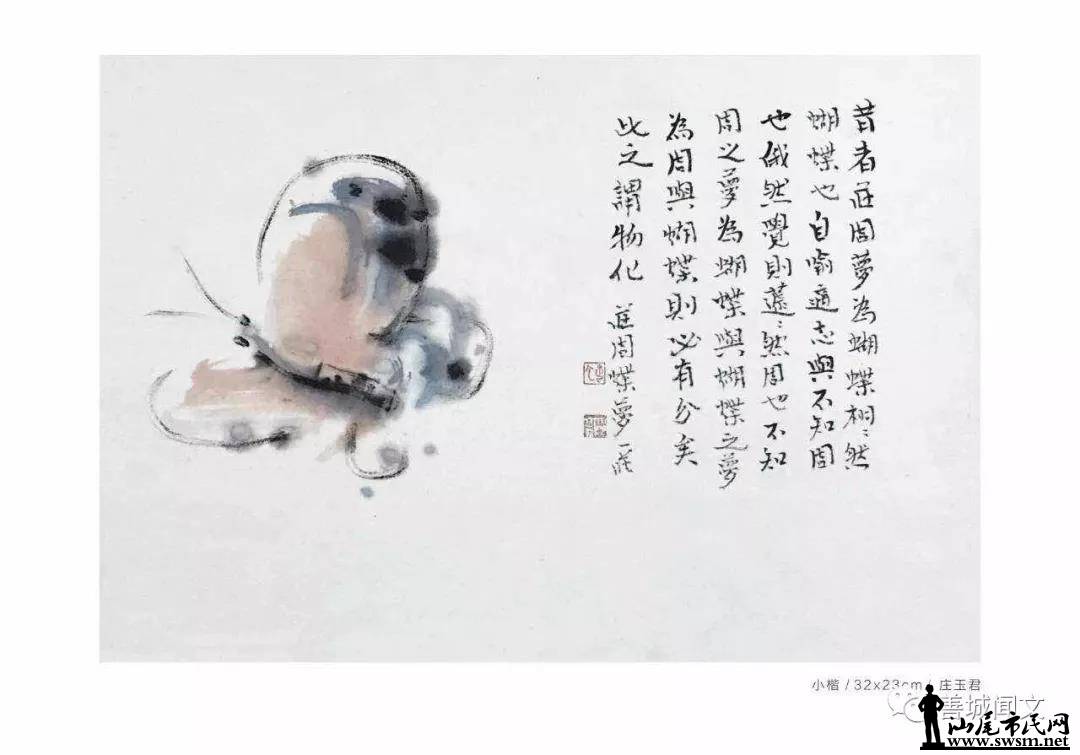 昔者莊周夢為蝴蝶栩〻然
蝴蝶也自喻適志與不知周
也俄然覺則蘧〻然周也不知
周之夢為蝴蝶與蝴蝶之夢
為周與蝴蝶則必有分矣
此之謂物化 莊周蝶夢一莊
小楷 / 32x23cm / 庄玉君
善城闻文
汕尾市民网
www.swsm.net